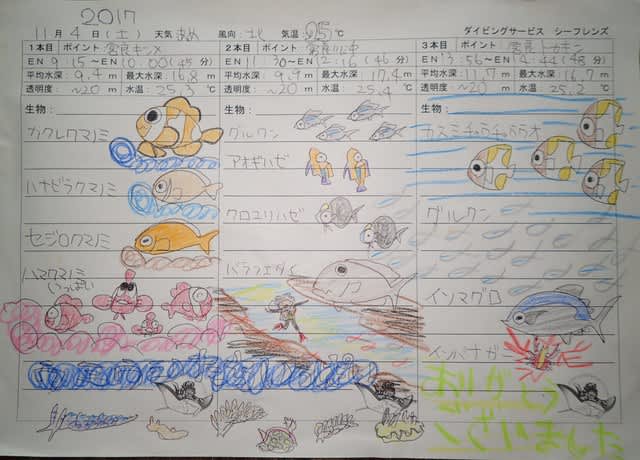 2017
11月4日(土) 天気 あめ 風向: 北 気温 25℃ ダイビングサービス シーフレンズ
1本目 ポイント 宮良キンメ
EN 9:15～EN 10:00(45分)
平均水深: 9.4m 最大水深 16.8m
透明度: ~20m 水温: 25.3℃
生物:
カクレクマノミ
ハナビラクマノミ
セジロクマノミ
ハマクマノミ
(いっぱい)
2本目 ポイント 宮良
EN 11:30～EN 12:16(46分)
平均水深: 9.9m 最大水深 17.4m
透明度: ~20m 水温: 25.4℃
生物:
グルクン
アオギハゼ
クロユリハゼ
バラフエダイ
3本目 ポイント 宮良 トカキン
EN 13:56～EN 14:44(48分)
平均水深: 11.7m 最大水深 16.7m
透明度: ~20m 水温: 25.2℃
生物:
カスミチョウチョウウオ
グルクン
イソマグロ
イソバナガ
ありがとう
ございました